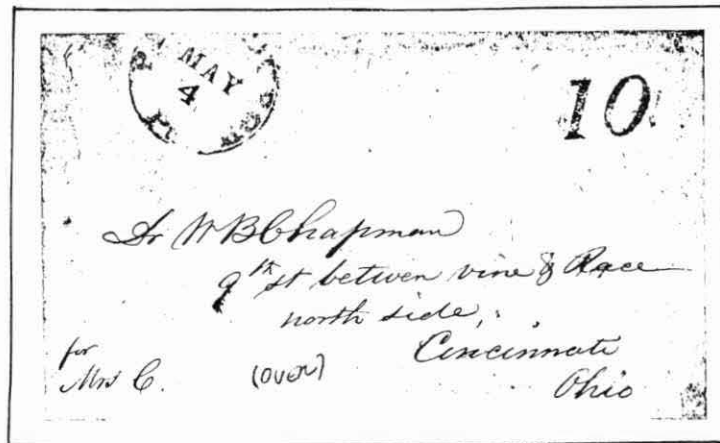 MAY
4
10
Dr W B Chapman
9th st betwen vine & Race
north side,
Cincinnati
Ohio
for
Mrs C.
(OVER)